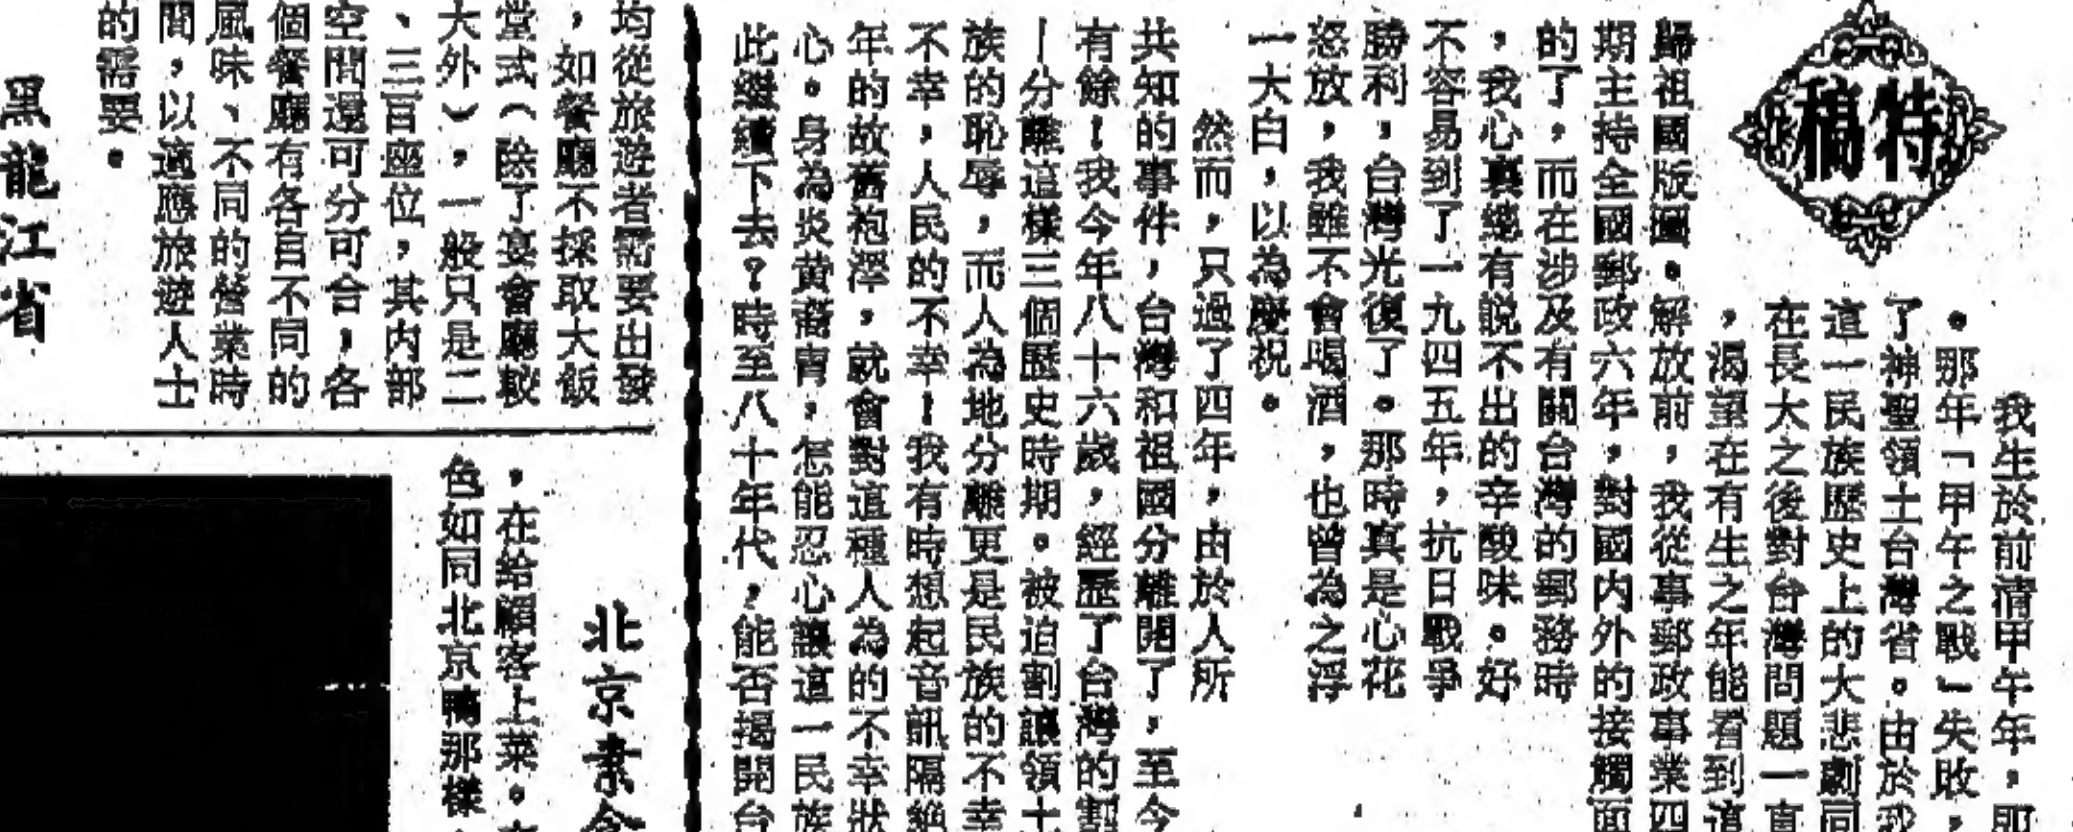 特稿
我生於前清甲午年，即
。那年「甲午之戰」失敗，
了神聖領土台灣省。由於我
這一民族歷史上的大悲劇同
在長大之後對台灣問題一直
，渴望在有生之年能看到這
歸祖國版圖。解放前，我從事郵政事業四
期主持全國郵政六年，對國內外的接觸面
的了，而在涉及有關台灣的郵務時
，我心裏總有說不出的辛酸味。好
不容易到了一九四五年，抗日戰爭
勝利，台灣光復了。那時真是心花
怒放，我雖不會喝酒，也曾為之浮
一大白，以為慶祝。
然而，只過了四年，由於人所
共知的事件，台灣和祖國分離開了，至今
有餘！我今年八十六歲，經歷了台灣的割
—分離這樣三個歷史時期。被迫割讓領土
族的恥辱，而人為地分離更是民族的不幸
不幸，人民的不幸！我有時想起音訊隔絕
年的故舊袍澤，就會對這種人為的不幸狀
心。身為炎黃裔胄，怎能忍心讓這一民族
此繼續下去？時至八十年代，能否揭開台
均從旅遊者需要出發
，如餐廳不採取大飯
堂式（除了宴會廳較
大外），一般只是二
、三百座位，其內部
空間還可分可合，各
個餐廳有各自不同的
風味、不同的營業時
間，以適應旅遊人士
的需要。
黑龍江省
北京素
，在給顧客上菜。
色如同北京鴨那樣